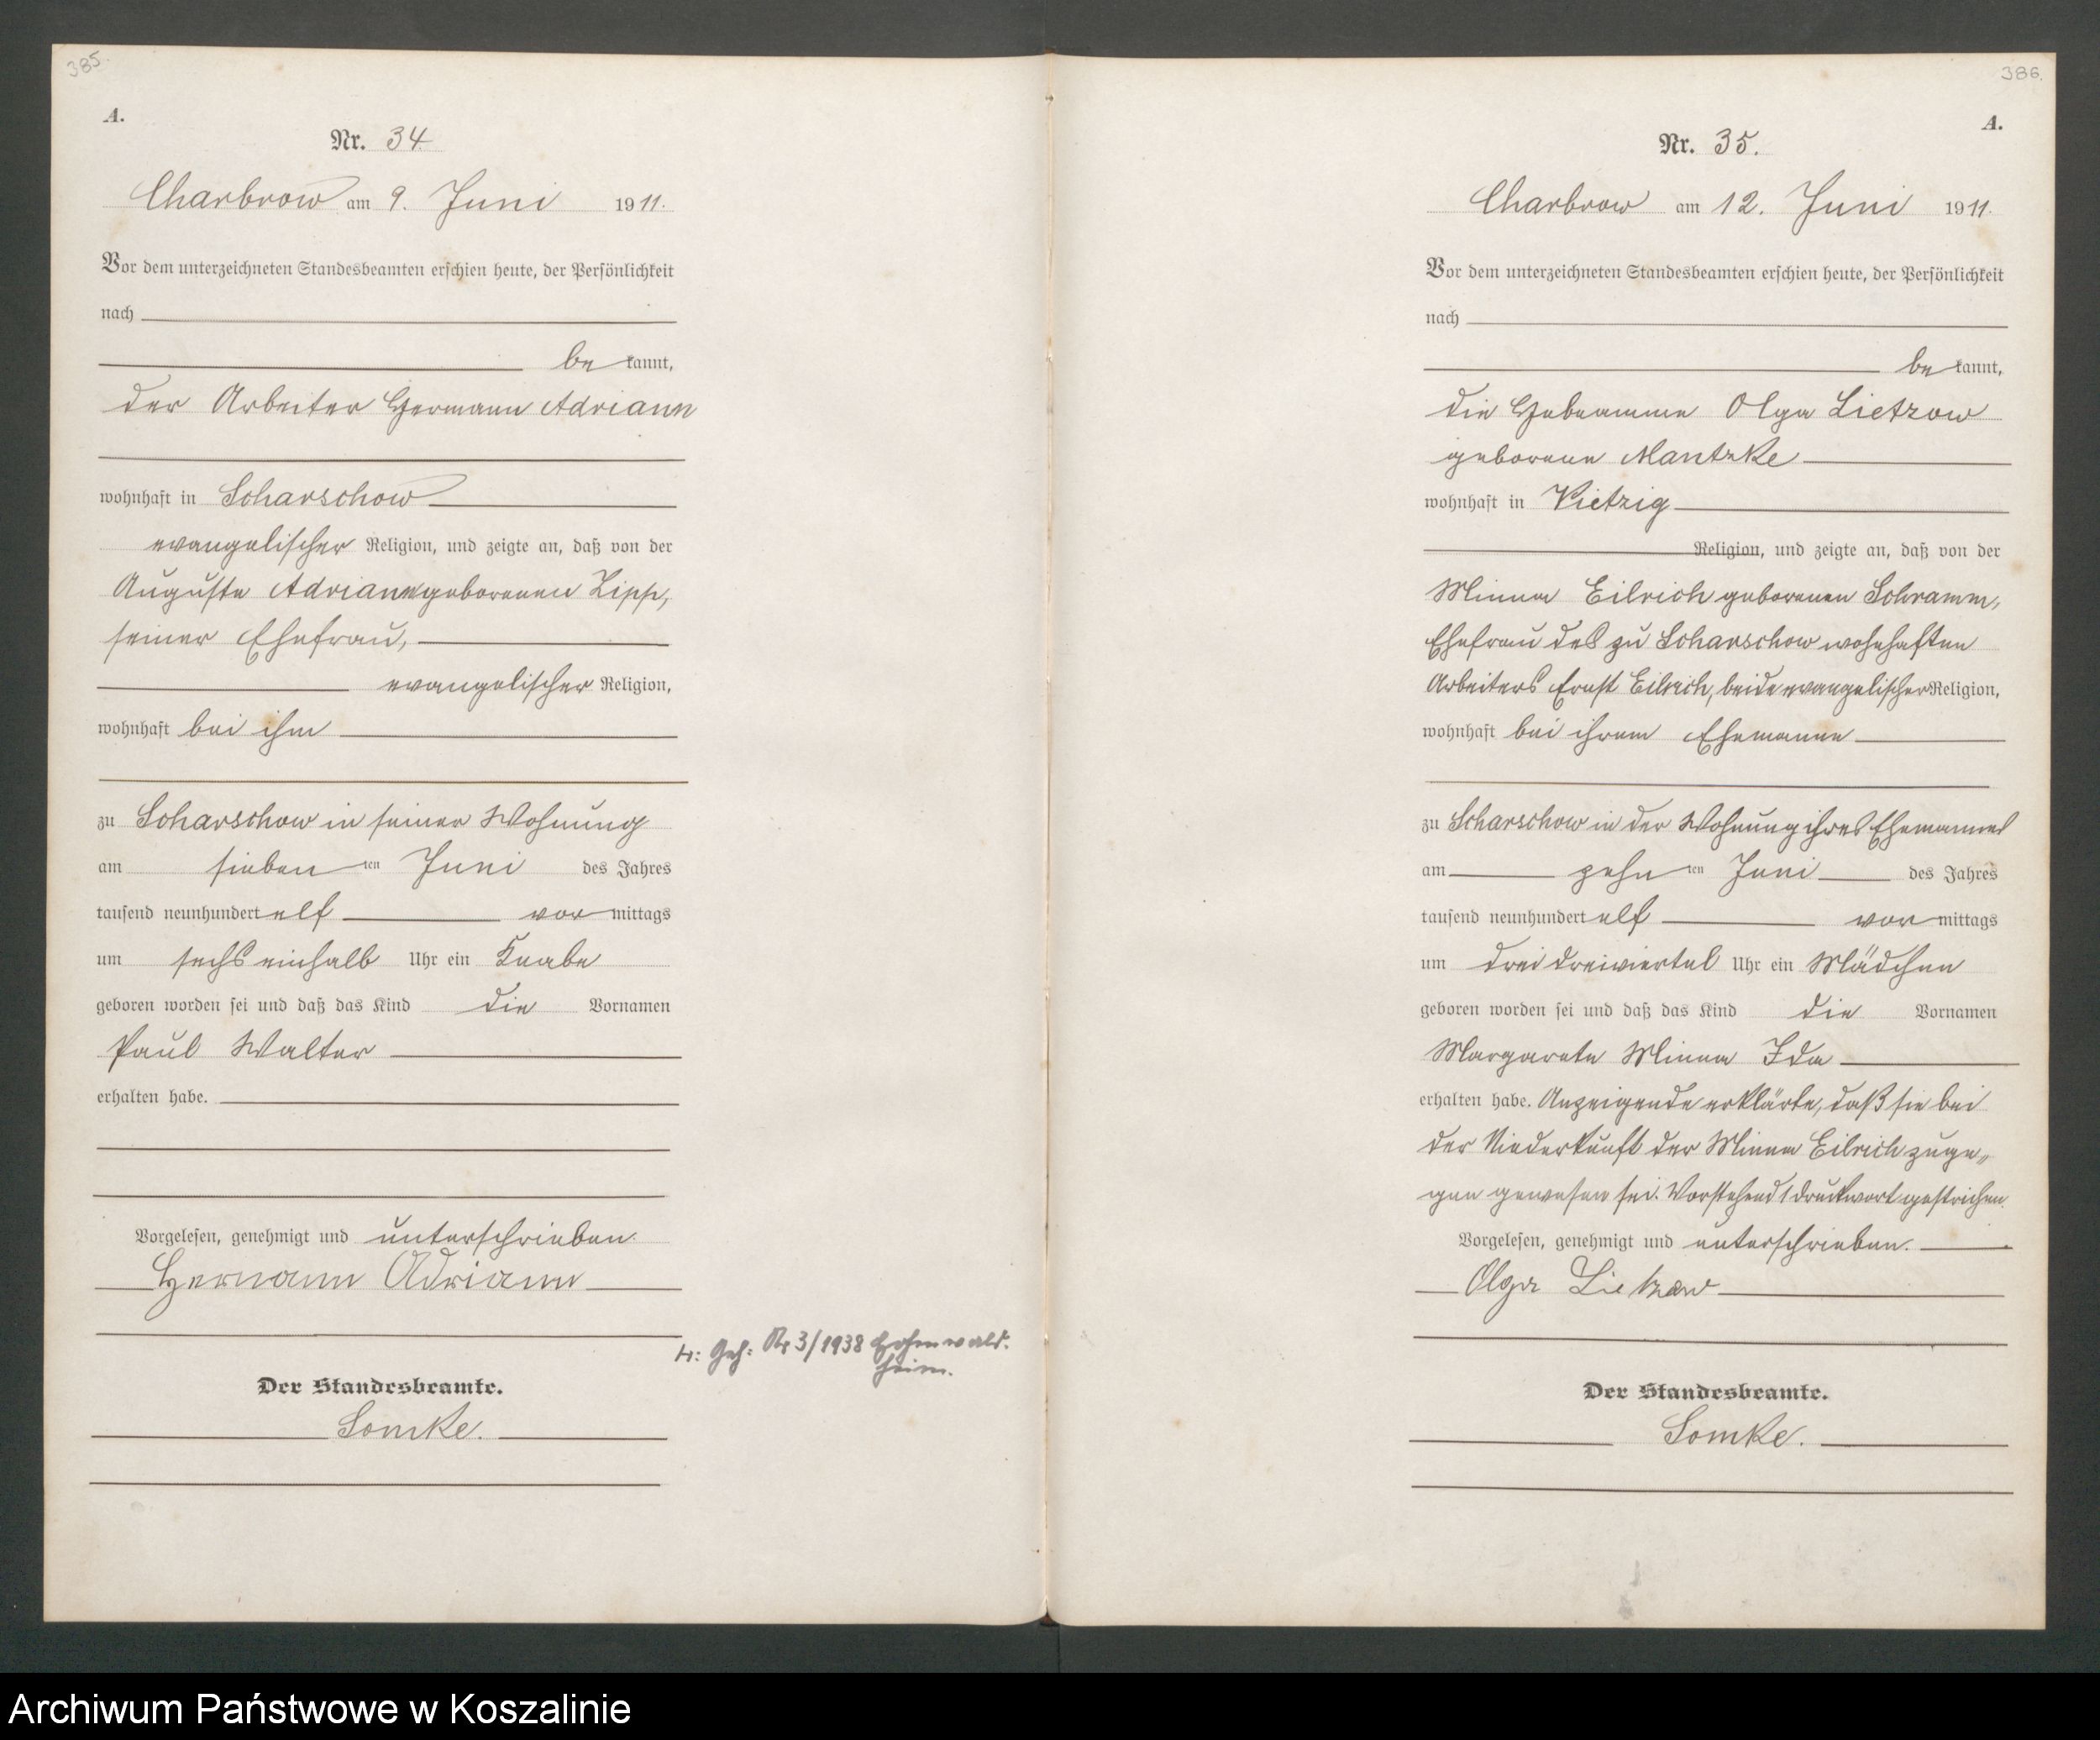 385.
A.
Nr. 34
Charbrow am 9. Juni 1911.
Vor dem unterzeichneten Standesbeamten erschien heute, der Persönlichkeit
nach
be kannt,
der Arbeiter Hermann Adriann
wohnhaft in Scharschow
evangelischer Religion, und zeigte an, daß von der
Auguste Adriann geborenen Zipp,
seiner Ehefrau,
evangelischer Religion,
wohnhaft bei ihm
zu Scharschow in seiner Wohnung
am sieben ten Juni des Jahres
tausend neunhundert elf vor mittags
um sechs einhalb Uhr ein Knabe
geboren worden sei und daß das Kind die Vornamen
Paul Walter
erhalten habe.
Vorgelesen, genehmigt und unterschrieben.
Hermann Adriann
Geh: Nr 3/1938 Hohenwald-
heim.
Der Standesbeamte.
Somke.
386.
A.
Nr. 35.
Charbrow am 12. Juni 1911.
Vor dem unterzeichneten Standesbeamten erschien heute, der Persönlichkeit
nach
be kannt,
die Hebeamme Olga Lietzow
geborene Mantzke
wohnhaft in Vietzig
Religion, und zeigte an, daß von der
Minna Eilrich geborenen Schramm,
Ehefrau des zu Scharschow wohnhaften
Arbeiters Ernst Eilrich, beide evangelischer Religion,
wohnhaft bei ihrem Ehemanne
zu Scharschow in der Wohnung ihres Ehemannes
am zehn ten Juni des Jahres
tausend neunhundert elf vor mittags
um drei dreiviertel Uhr ein Mädchen
geboren worden sei und daß das Kind die Vornamen
Margarete Minna Ida
erhalten habe. Anzeigende erklärte, daß sie bei
der Niederkunft der Minna Eilrich zuge„
gen gewesen sei. Vorstehend 1 Druckwort gestrichen.
Vorgelesen, genehmigt und unterschrieben.
Olga Lietzow
Der Standesbeamte.
Somke.
Archiwum Państwowe w Koszalinie